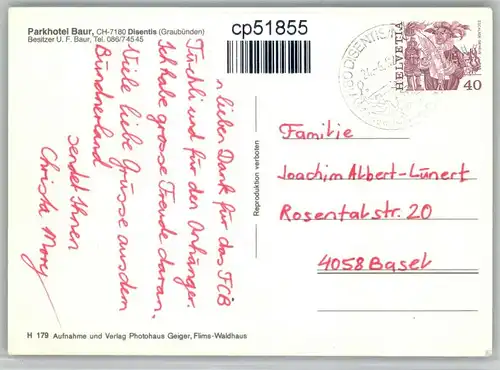 Parkhotel Baur, CH-7180 Disentis (Graubünden)
Besitzer U. F. Baur, Tel. 086/74545
cp51855
HELVETIA
40
n lieben Dank für das FCB
Tüchli und für den Anhänger.
Ich habe grosse Freude daran.
Viele liebe Grüsse aus dem
Bündnerland
sendet Ihnen
Christa
Reproduktion verboten
Familie
Joachim Albert-Lünert
Rosentalstr. 20
4058 Basel
H 179 Aufnahme und Verlag Photohaus Geiger, Flims-Waldhaus